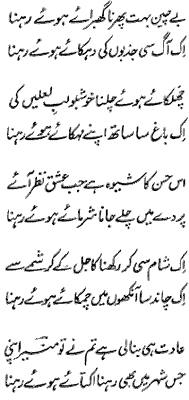 بے چین بہت پھرنا گھبرائے ہوئے رہنا
اِک آگ سی جذبوں کی دہکائے ہوئے رہنا
چھلکائے ہوئے چلنا خوشبو لبِ لعلیں کی
اک باغ سا ساتھ اپنے مہکائے ہوئے رہنا
اس حسن کا شیوہ ہے جب عشق نظر آئے
پردے میں چلے جانا شرمائے ہوئے رہنا
اِک شام سی کر رکھنا کاجل کے کرشمے سے
اِک چاند سا آنکھوں میں چمکائے ہوئے رہنا
عادت ہی بنا لی ہے تم نے تو منیرؔ اپنی
جس شہر میں بھی رہنا اکتائے ہوئے رہنا